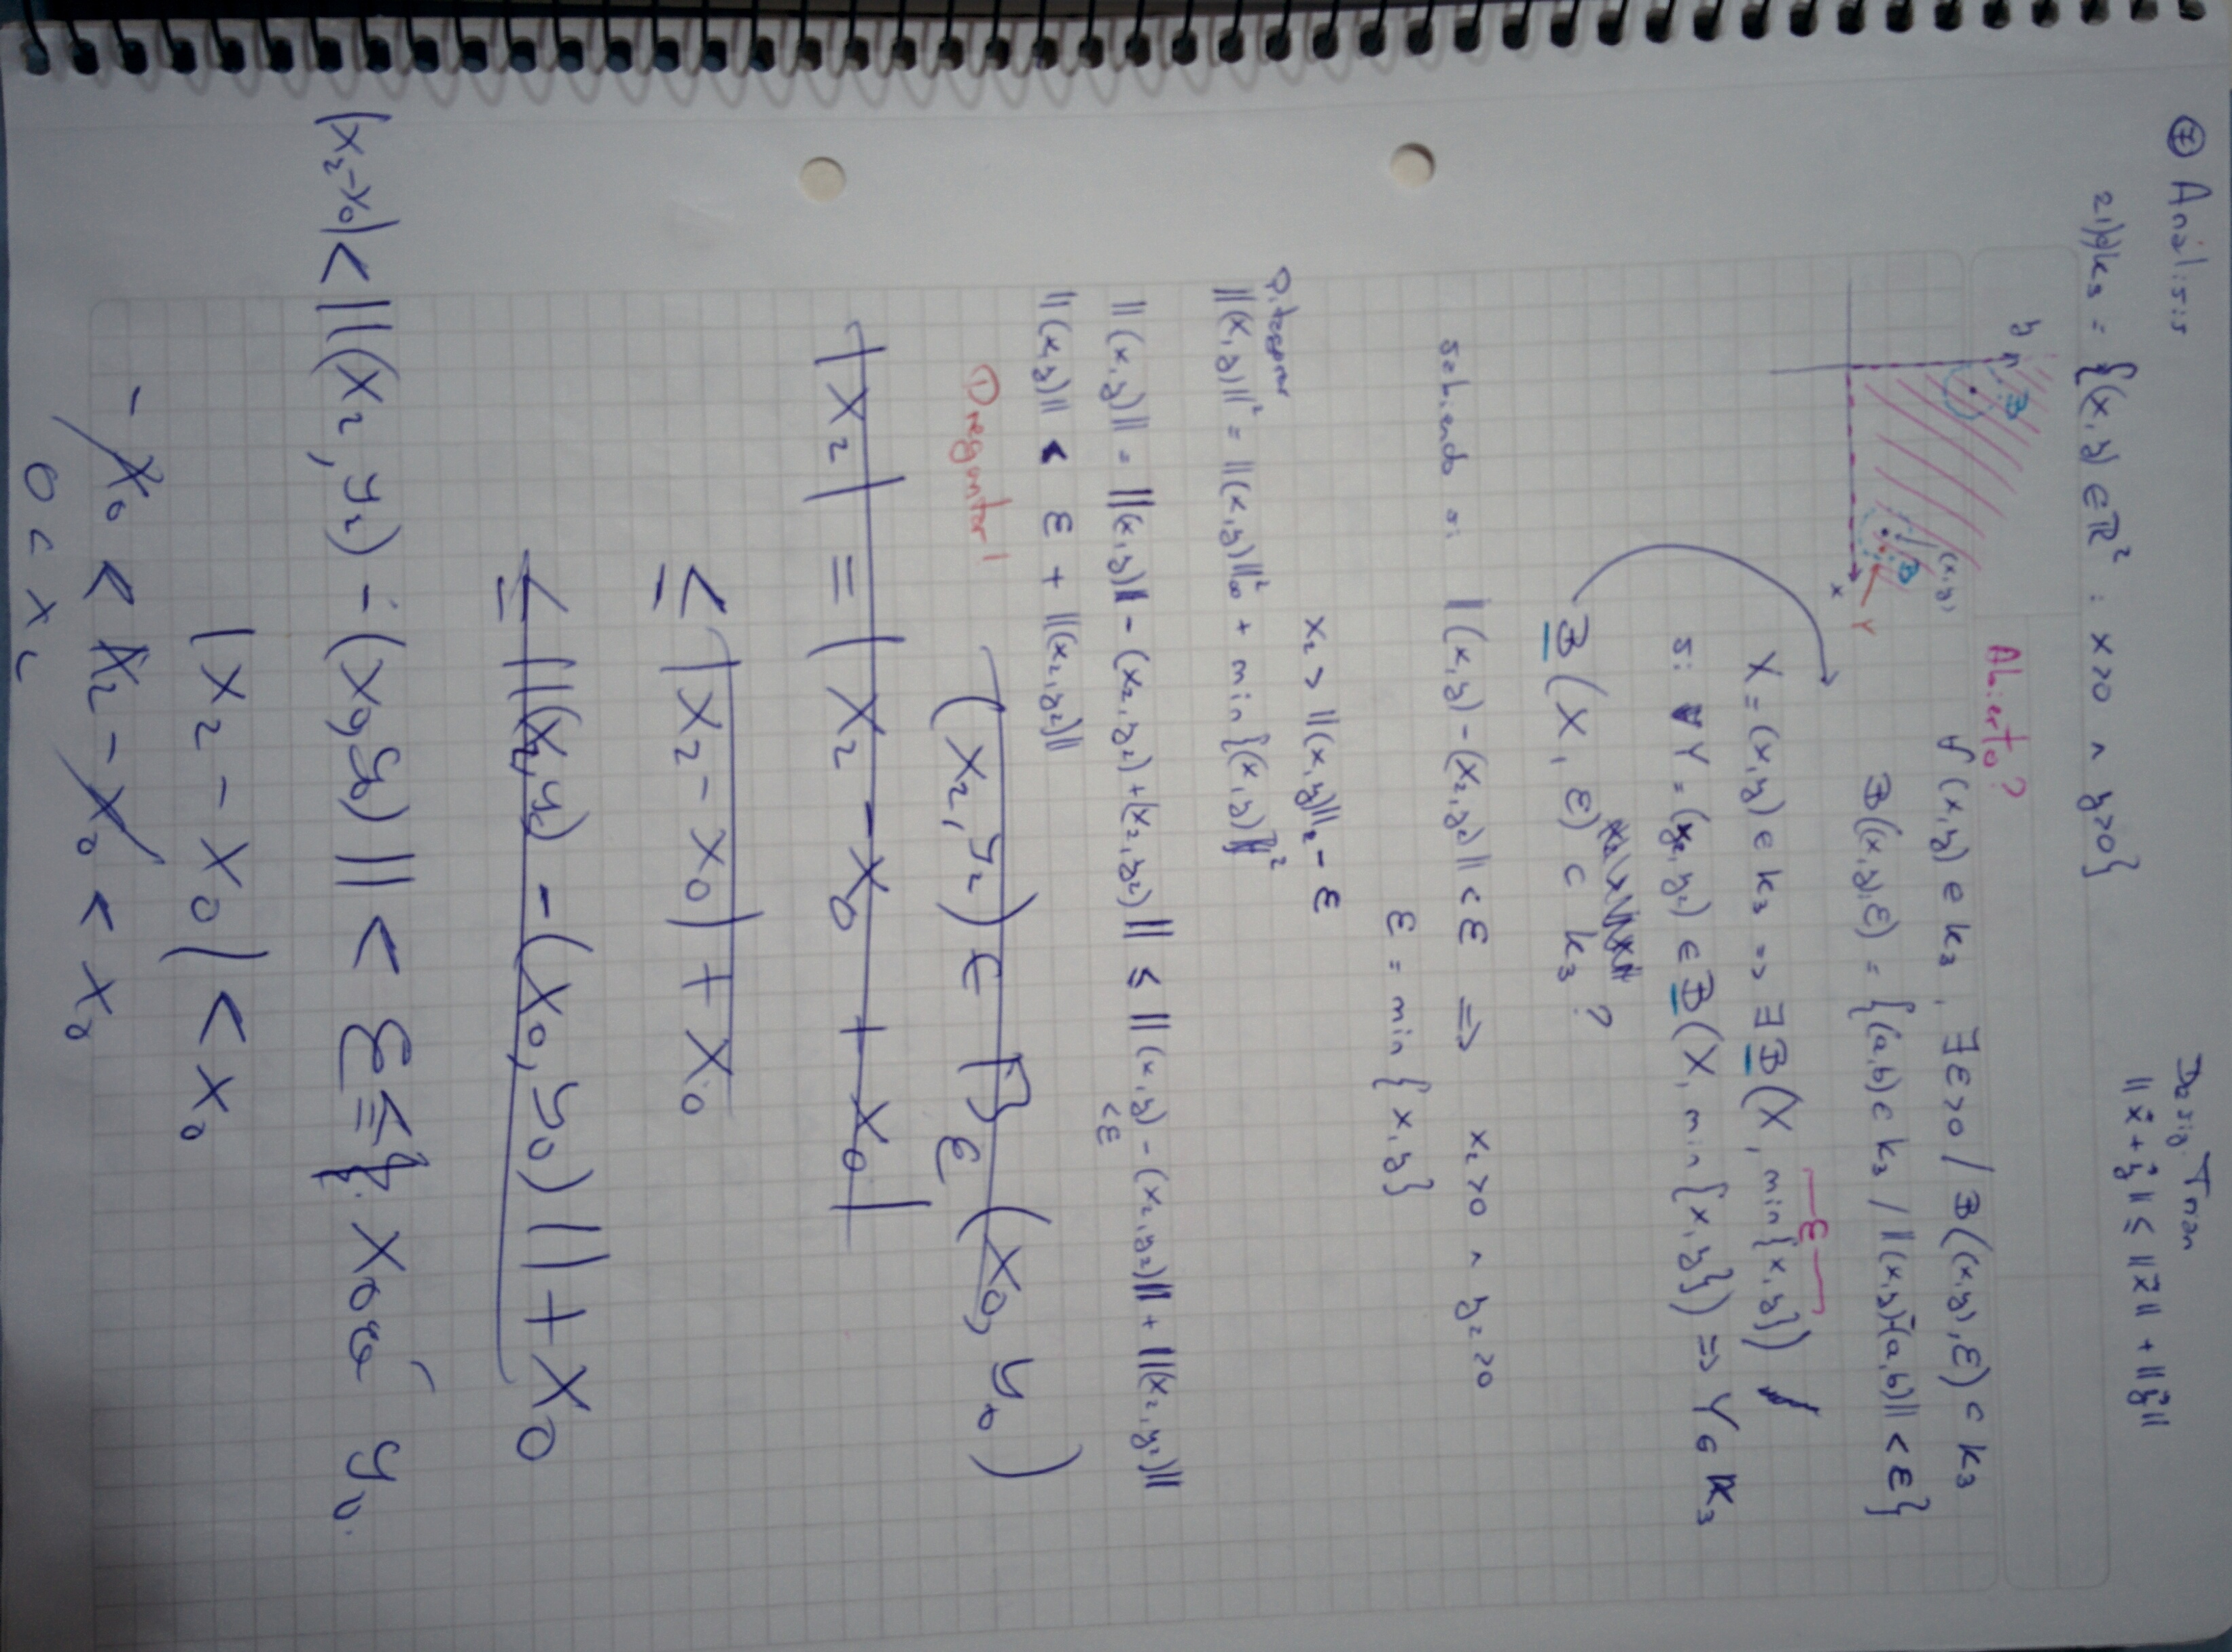 ⑦ Análisis
Desig. Trian
||x⃗ + y⃗|| ≤ ||x⃗|| + ||y⃗||
K₃ = {(x,y) ∈ ℝ² : x>0 ∧ y>0}
y
B
(x,y)
B
Y
x
Abierto?
∀ (x,y) ∈ K₃, ∃ε>0 / B((x,y),ε) ⊂ K₃
B((x,y),ε) = {(a,b) ∈ K₃ / ||(x,y)-(a,b)|| < ε}
ε
X = (x,y) ∈ K₃ => ∃ B(X, min{x,y}) ✓
si ∀ Y = (x₂, y₂) ∈ B(X, min{x,y}) => Y ∈ K₃
B(X, ε) ⊂ K₃?
sabiendo si ||(x,y) - (x₂,y₂)|| < ε => x₂>0 ∧ y₂>0
ε = min{x,y}
x₂ > ||(x,y)||₂ - ε
Pitagoras
||(x,y)||² = ||(x,y)||²∞ + min{(x,y)}²
||(x,y)|| = ||(x,y) - (x₂,y₂) + (x₂,y₂)|| ≤ ||(x,y) - (x₂,y₂)|| + ||(x₂,y₂)||
<ε
||(x,y)|| < ε + ||(x₂,y₂)||
Preguntar!
(x₂,y₂) ∈ B_ε (x₀, y₀)
|x₂| = |x₂ - x₀ + x₀|
≤ |x₂ - x₀| + x₀
≤ ||(x₂,y₂) - (x₀,y₀)|| + x₀
|x₂-x₀| < ||(x₂,y₂) - (x₀,y₀)|| < ε ≤ x₀ ó y₀.
|x₂ - x₀| < x₀
- x₀ < x₂ - x₀ < x₀
0 < x₂